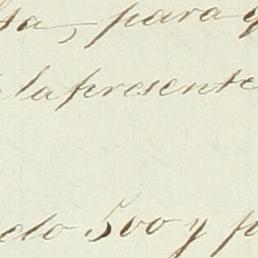 ta, para
la presente
do 500 y p